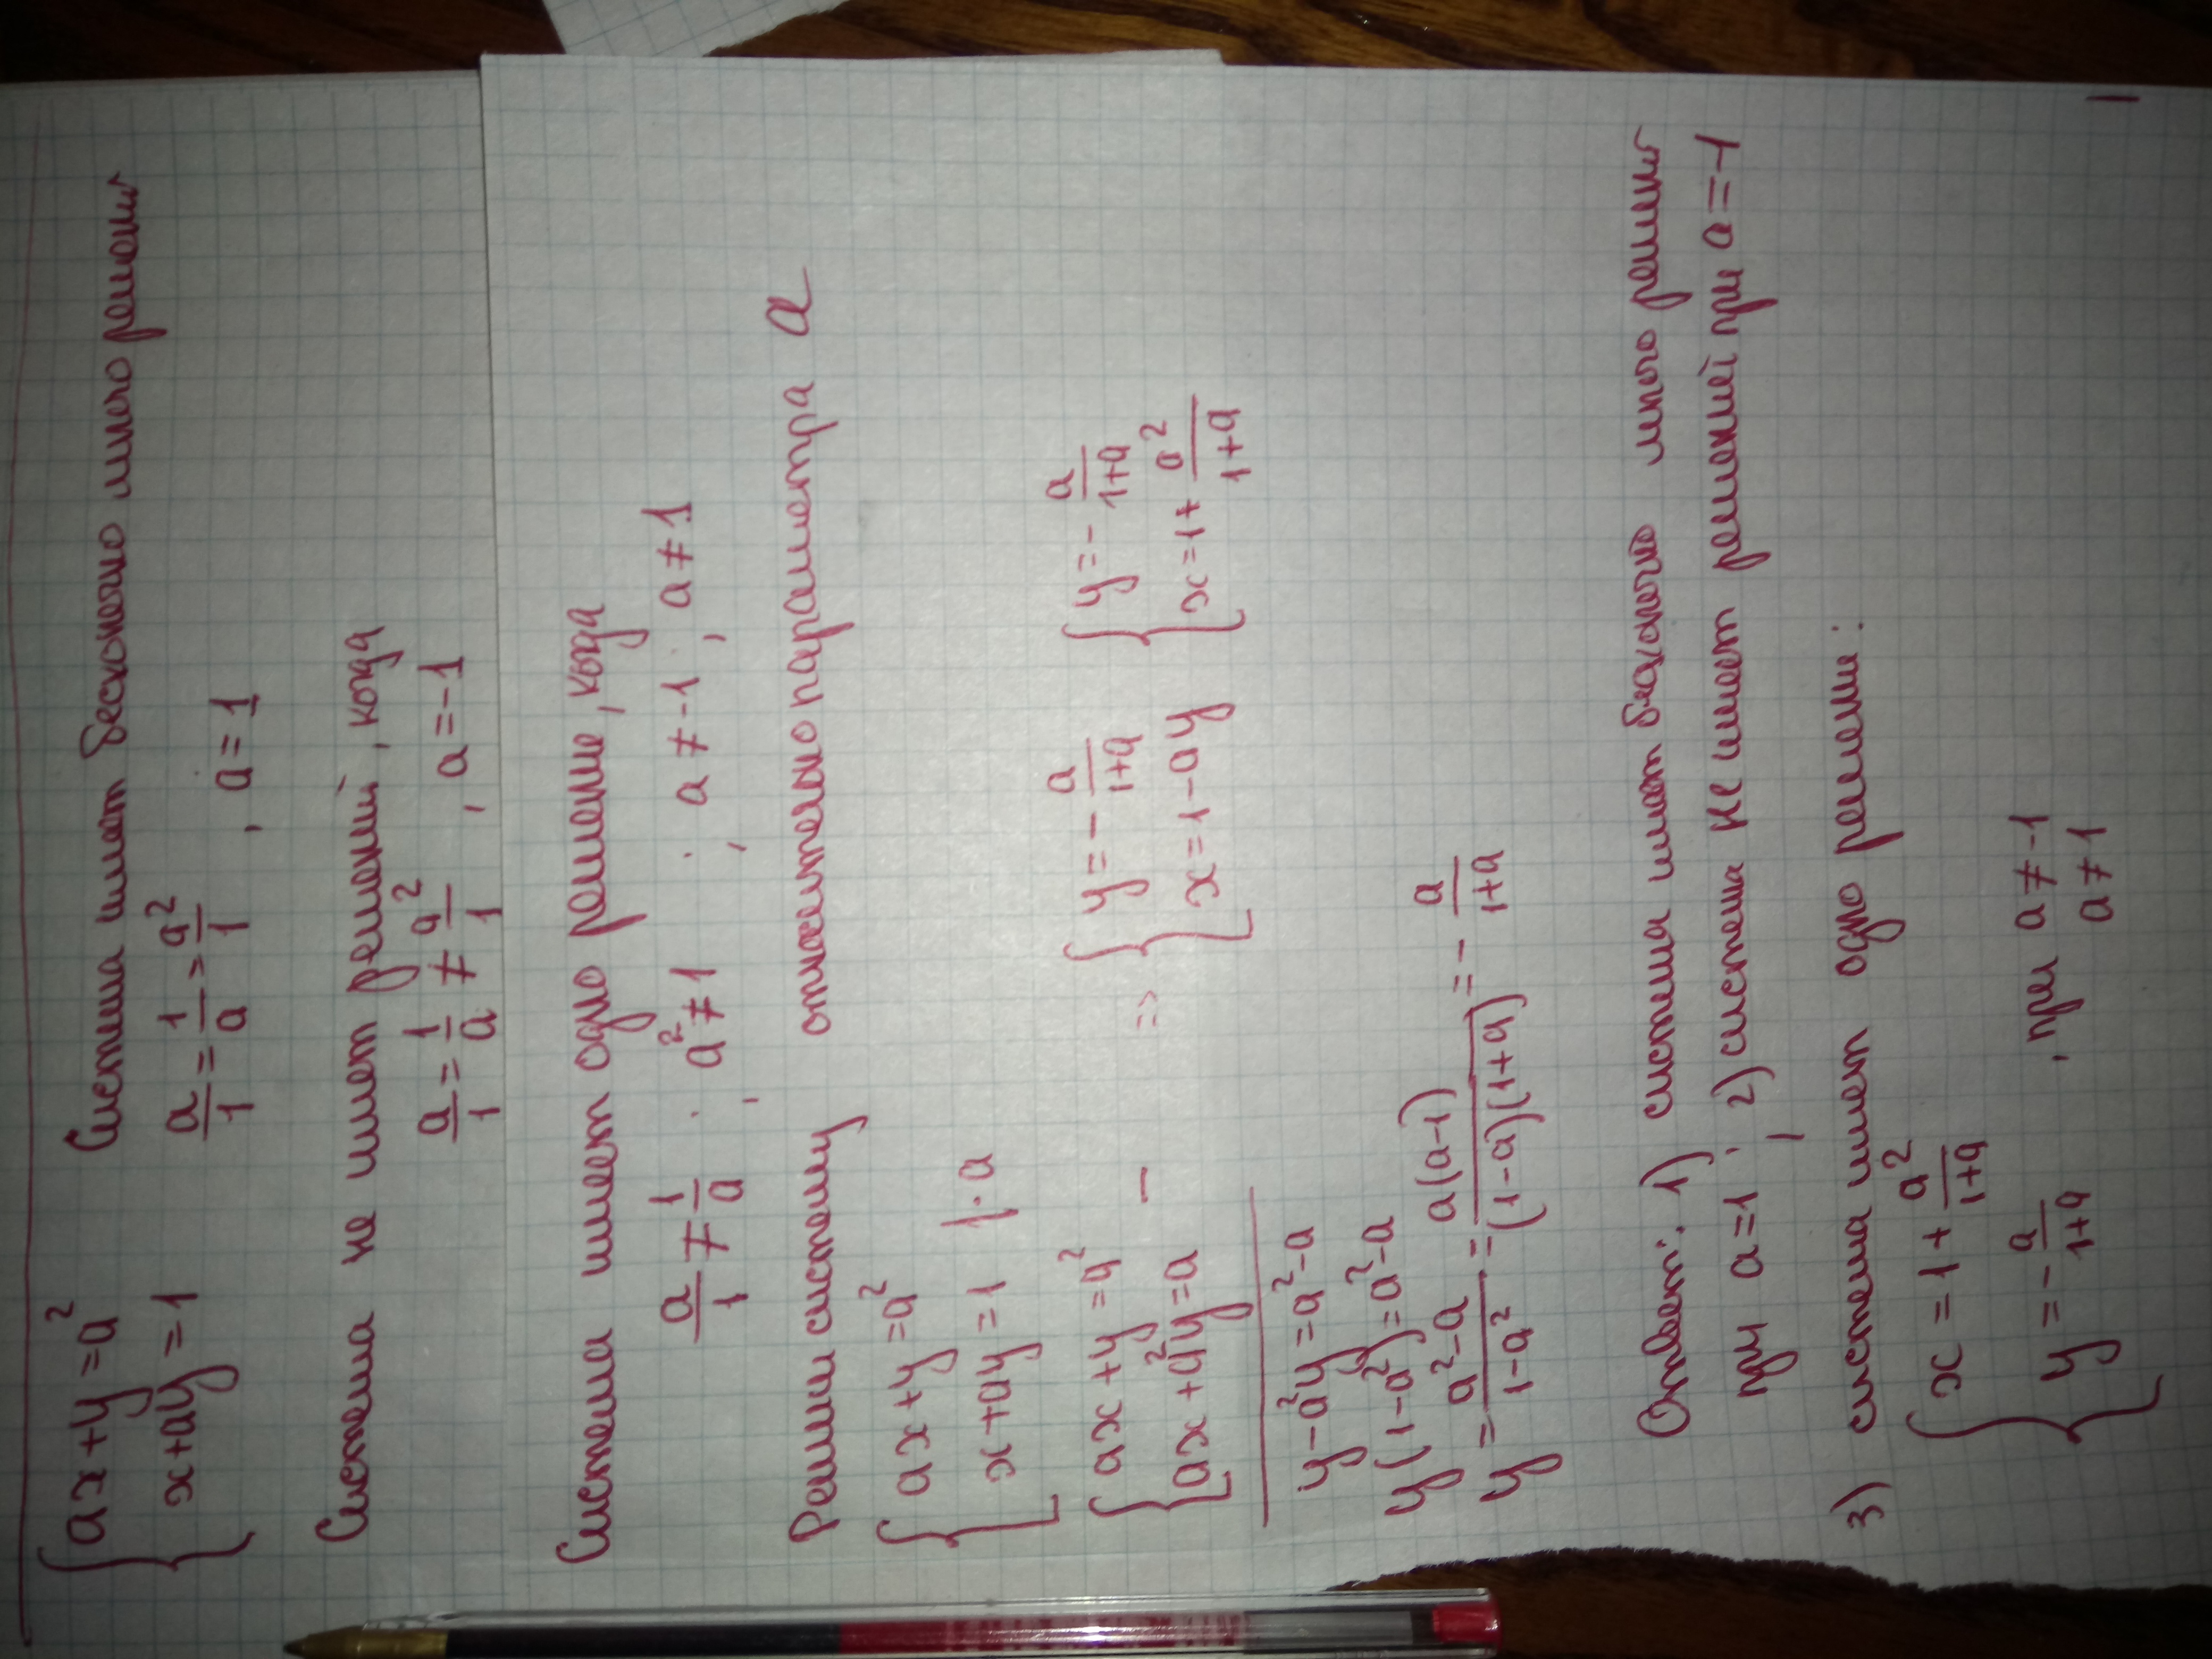 {ax+y=a² Система имеет бесконечно много решени
{x+ay=1 a/1=1/a=a²/1, a=1
Система не имеет решений, когда
a/1=1/a≠a²/1, a=-1
Система имеет одно решение, когда
a/1≠1/a; a²≠1; a≠-1; a≠1
Решим систему относительно параметра a
{ax+y=a²
{x+ay=1 |·a
{ax+y=a²
{ax+a²y=a - => {y=-a/(1+a) {x=1-ay {y=-a/(1+a) {x=1+a²/(1+a)
y-a²y=a²-a
y(1-a²)=a²-a
y=(a²-a)/(1-a²)=a(a-1)/((1-a)(1+a))=-a/(1+a)
Ответ: 1) система имеет бесконечно много решени
при a=1; 2) система не имеет решений при a=-1
3) система имеет одно решени:
{x=1+a²/(1+a)
{y=-a/(1+a), при a≠-1
a≠1